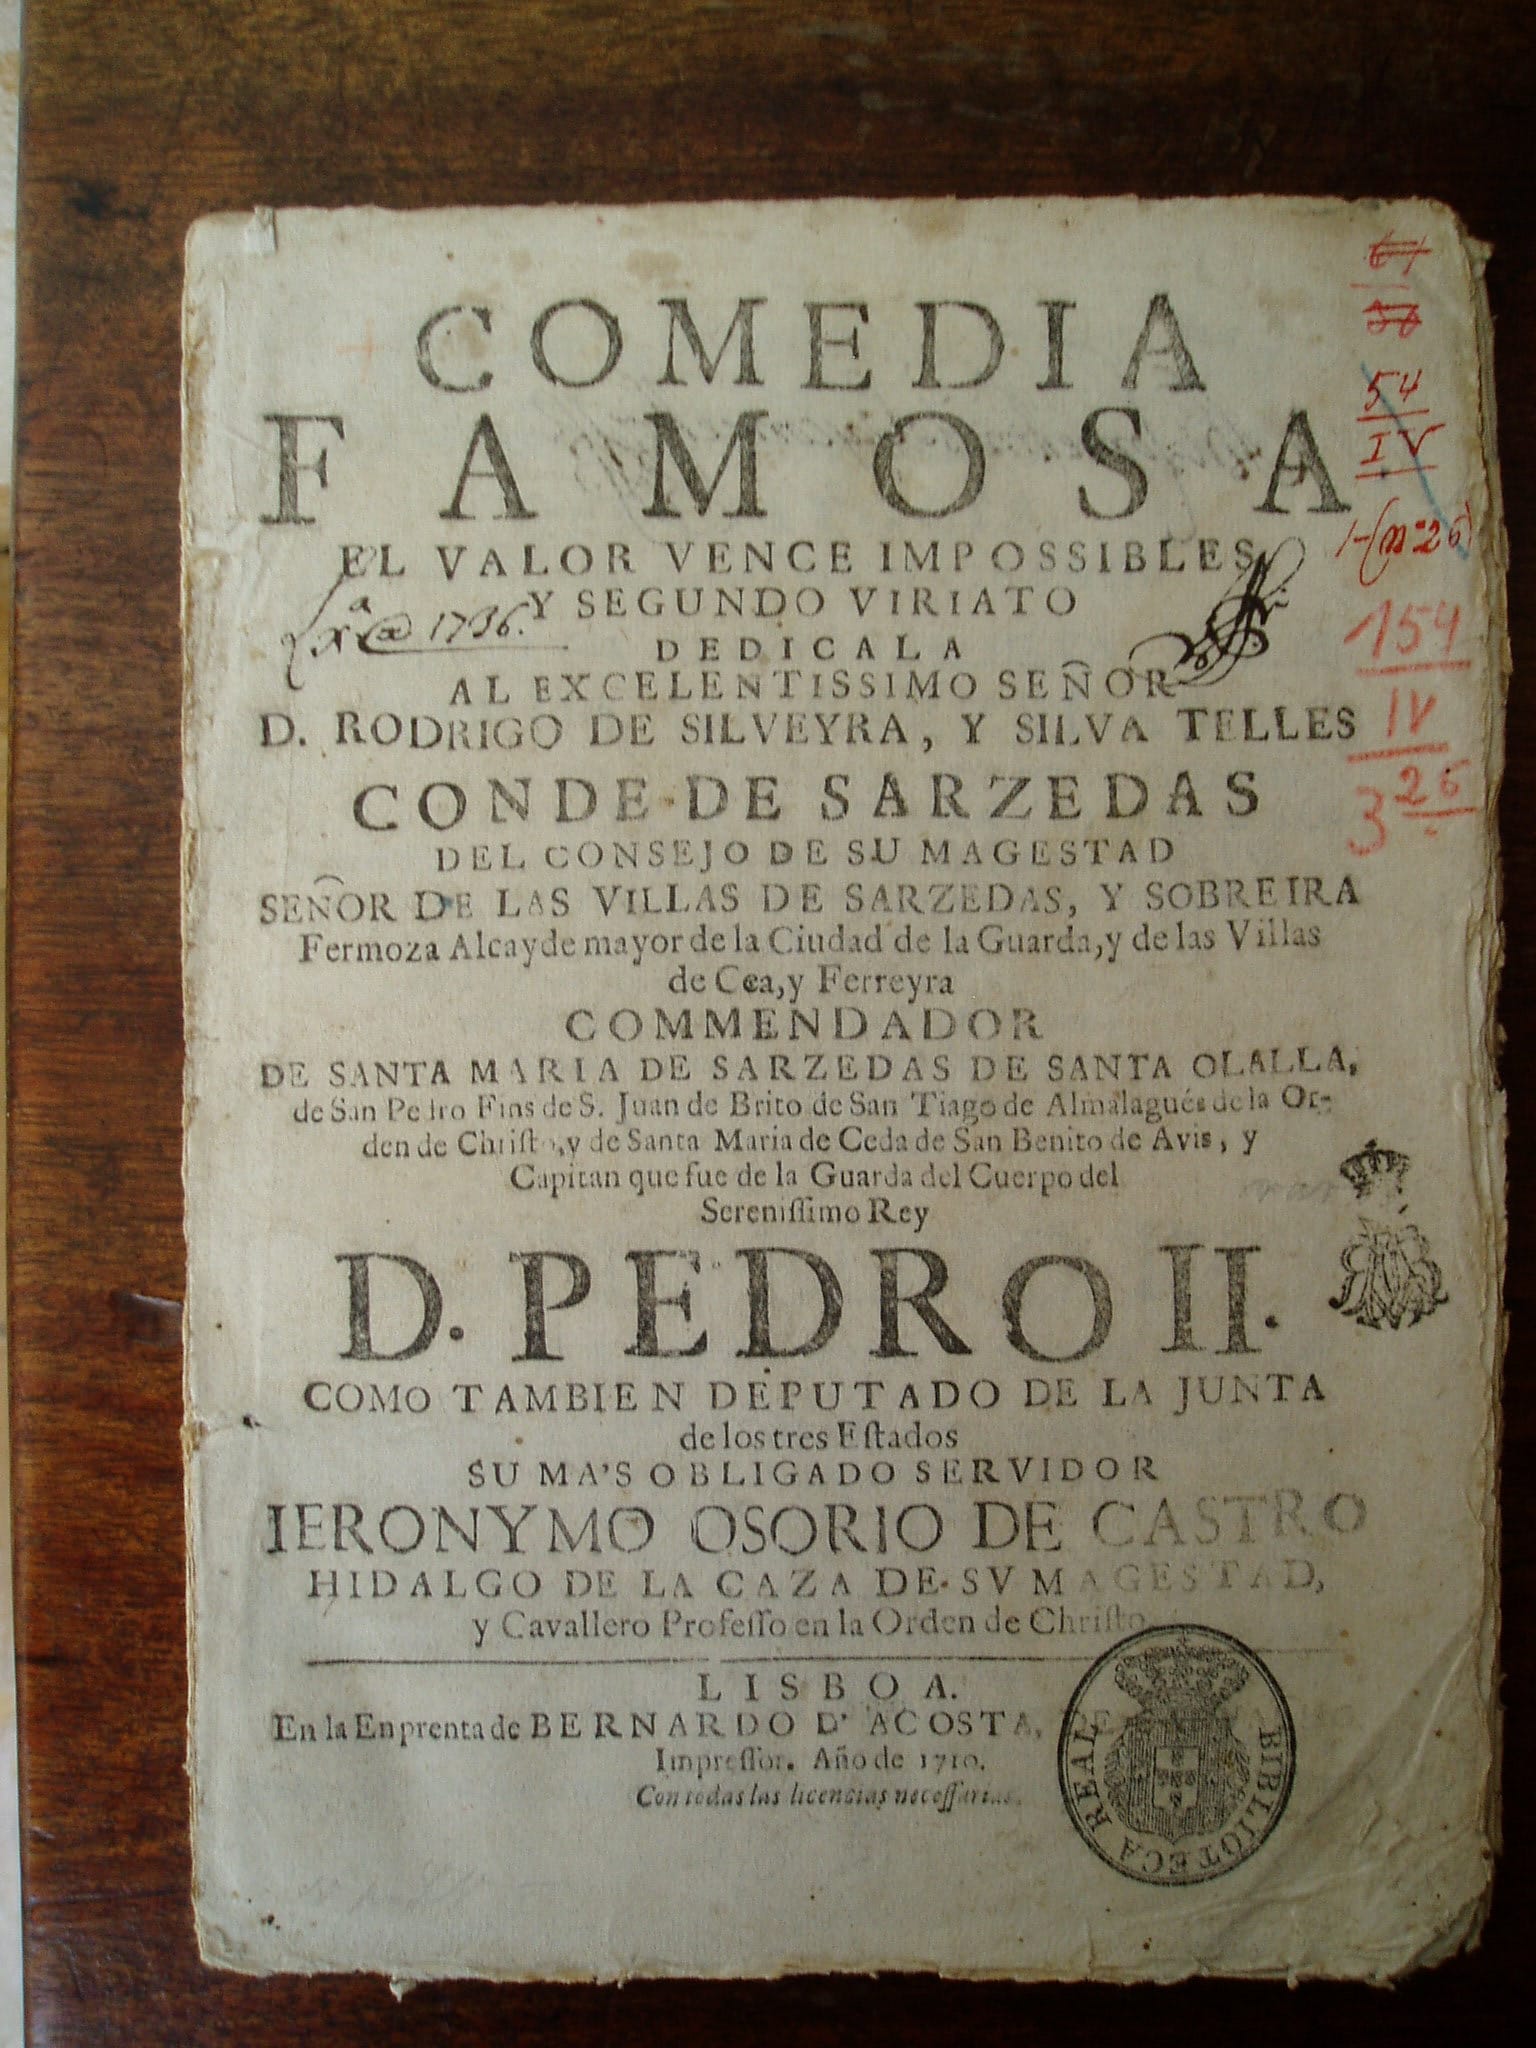 COMEDIA
FAMOSA
EL VALOR VENCE IMPOSSIBLES
Y SEGUNDO VIRIATO
DEDICALA
AL EXCELENTISSIMO SEÑOR
D. RODRIGO DE SILVEYRA, Y SILVA TELLES
CONDE DE SARZEDAS
DEL CONSEJO DE SU MAGESTAD
SEÑOR DE LAS VILLAS DE SARZEDAS, Y SOBREIRA
Fermoza Alcayde mayor de la Ciudad de la Guarda, y de las Villas
de Cea, y Ferreyra
COMMENDADOR
DE SANTA MARIA DE SARZEDAS DE SANTA OLALLA,
de San Pedro Fins de S. Juan de Brito de San Tiago de Almalagués de la Or-
den de Chriſto, y de Santa Maria de Ceda de San Benito de Avis, y
Capitan que fue de la Guarda del Cuerpo del
Sereniſſimo Rey
D. PEDRO II.
COMO TAMBIEN DEPUTADO DE LA JUNTA
de los tres Eſtados
SU MA'S OBLIGADO SERVIDOR
IERONYMO OSORIO DE CASTRO
HIDALGO DE LA CAZA DE SV MAGESTAD,
y Cavallero Profeſſo en la Orden de Chriſto
LISBOA.
En la Enprenta de BERNARDO D' ACOSTA,
Impreſſor. Año de 1710.
Con todas las licencias neceſſarias.
1736.
54
IV
(nº 26)
154
IV
3 26
BIBLIOTECA REAL